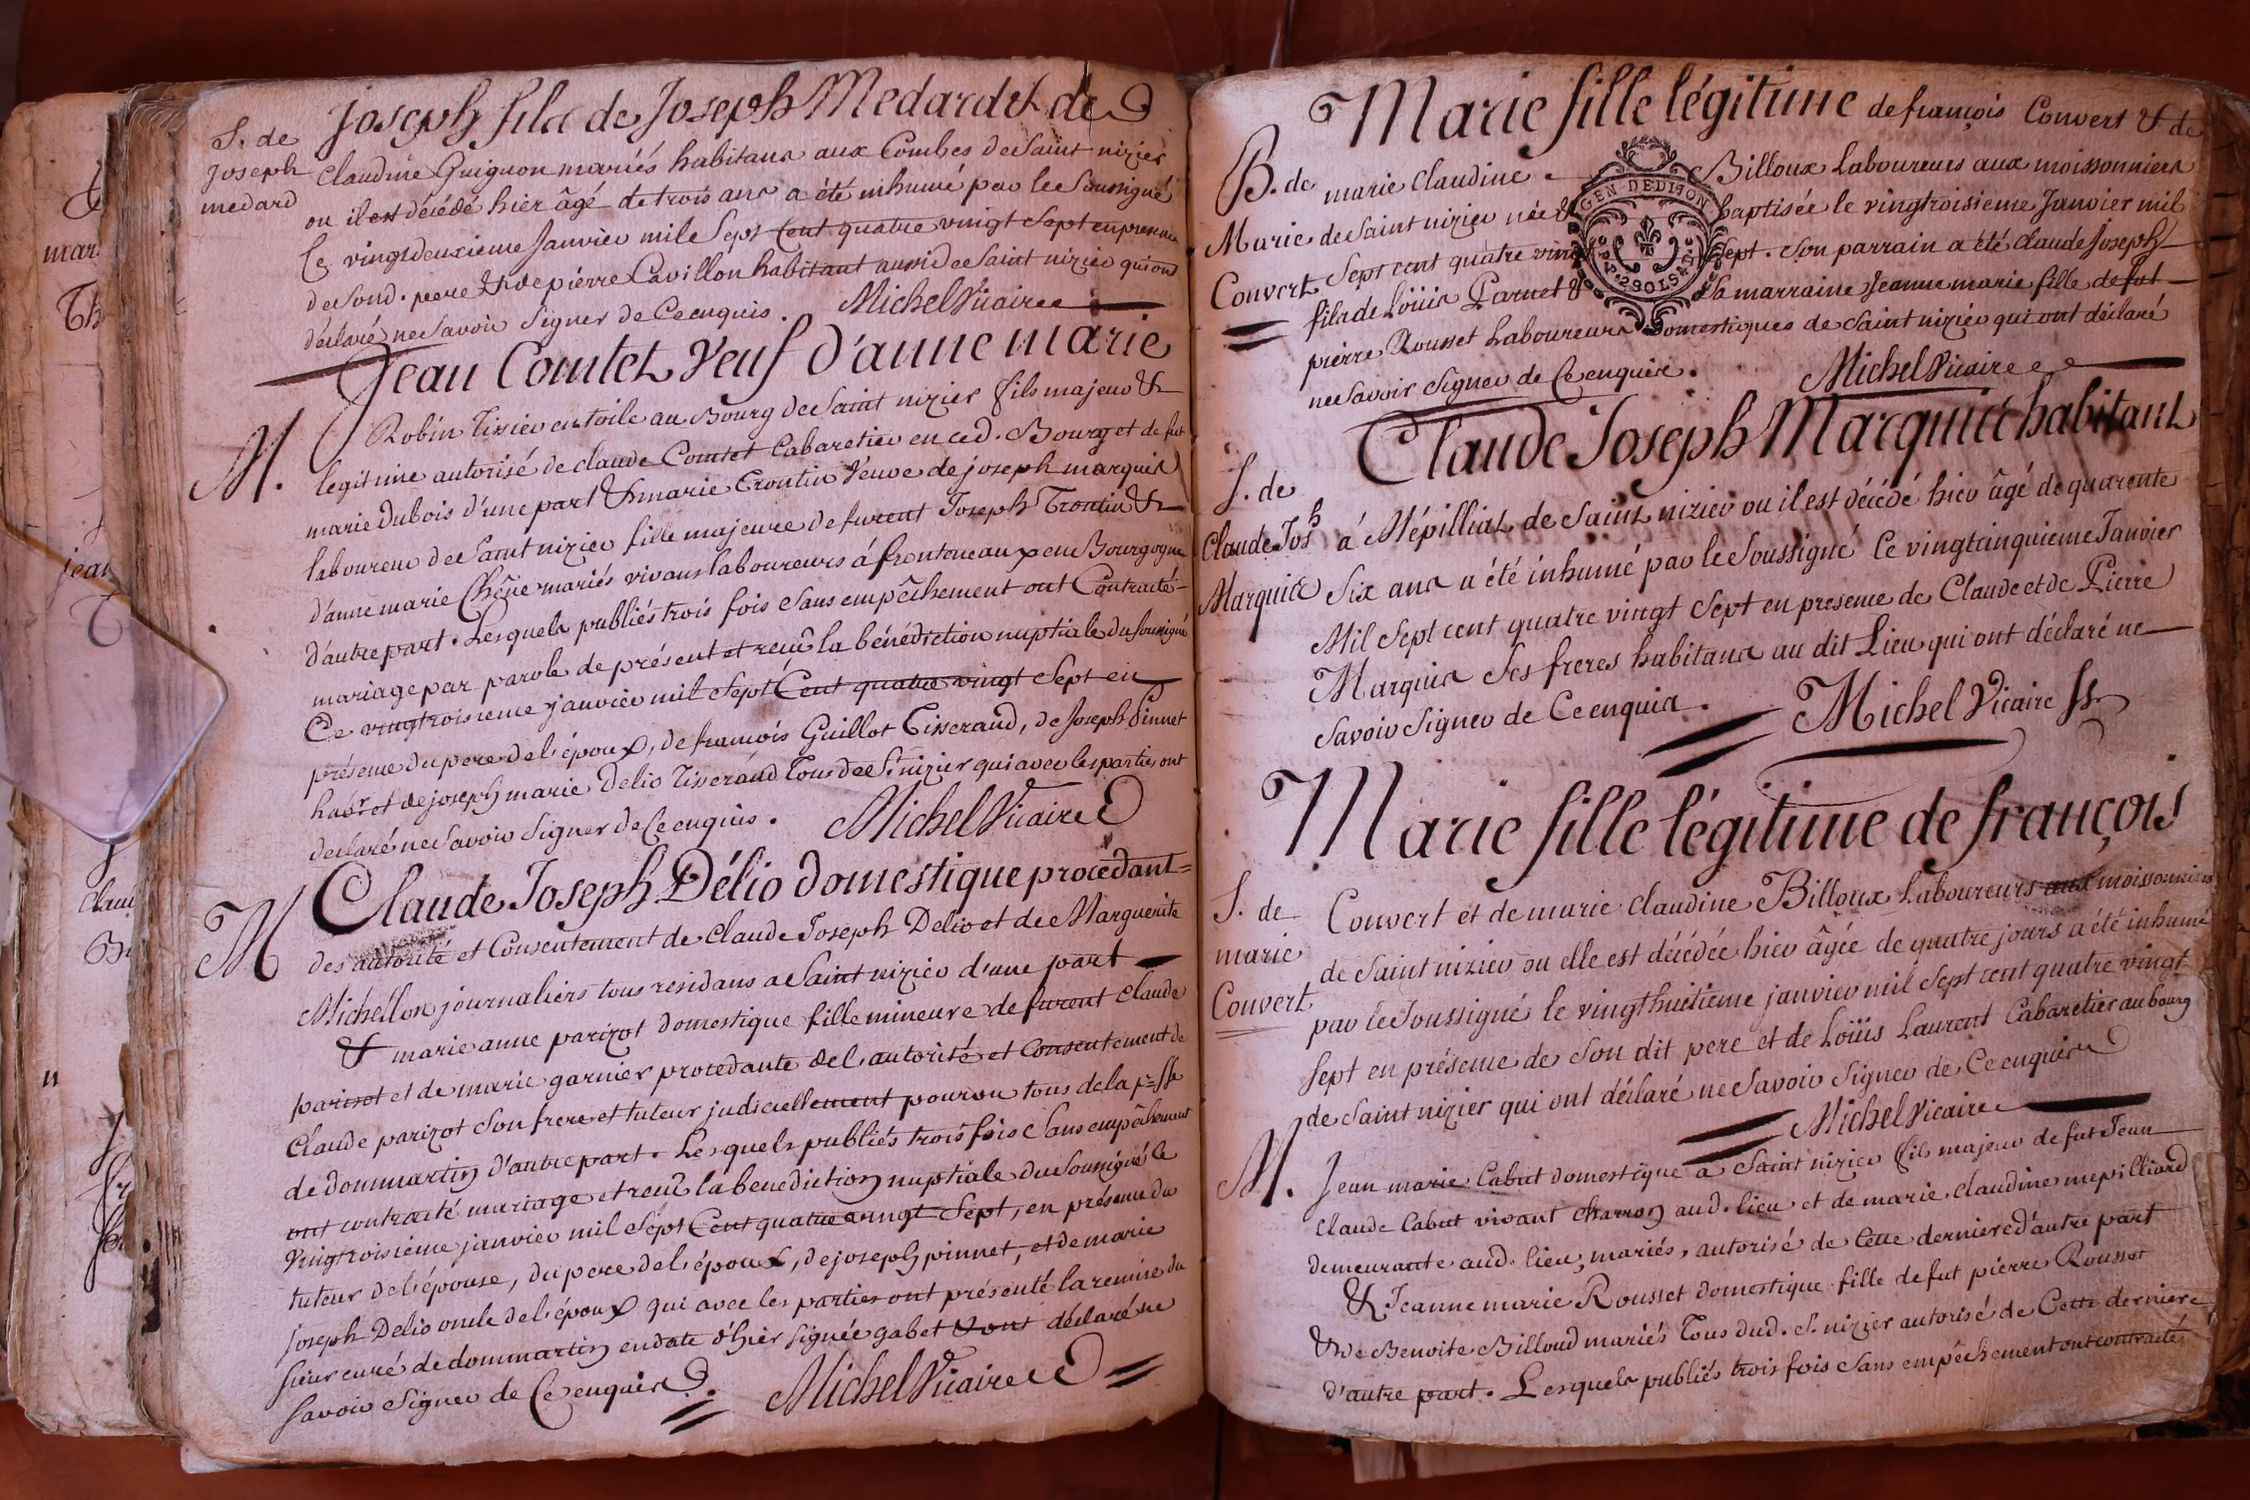 S. de
Joseph
medard
Joseph fils de Joseph Medard & de
Claudine Guignon mariés habitans aux Combes de Saint nizier
ou il est décédé hier âgé de trois ans a été inhumé par le Soussigné
Ce vingtdeuxieme Janvier mil Sept Cent quatre vingt Sept en presence
de Sond. pere & de pierre Cavillon habitant aussi de Saint nizier qui ont
déclaré ne Savoir Signer de Ce enquis. Michel Vicaire
M.
Jean Comtet Veuf d'anne marie
Robin Tissier en toile au Bourg de Saint nizier fils majeur &
legitime autorisé de claude Comtet Cabaretier en ced. Bourg et de fut
marie Dubois d'une part & marie Trontin Veuve de joseph marquis
laboureur de Saint nizier fille majeure de furent Joseph Trontin &
d'anne marie Chêne mariés vivans laboureurs á frontenaux en Bourgogne
d'autre part. Lesquels publiés trois fois Sans empêchement ont Contracté
mariage par parole de présent et reçu la bénédiction nuptiale du Soussigné
Ce vingtroisieme janvier mil Sept Cent quatre vingt Sept en
présence du pere de l'époux, de françois Guillot Tisserand, de Joseph pinnet
habt. et de joseph marie Delio Tisserand Tous de St. nizier qui avec les parties ont
declaré ne Savoir Signer de Ce enquis. Michel Vicaire
M
Claude Joseph Délio domestique procédant
des autorité et Consentement de Claude Joseph Delio et de Marguerite
Michéllon journaliers tous residans a Saint nizier d'une part
& marie anne parizot domestique fille mineure de furent Claude
parisot et de marie garnier procedante de l'autorité et Consentement de
Claude parizot Son frere et tuteur judiciellement pourvu tous de la psse
de dommartin d'autre part. Lesquels publiés trois fois Sans empêchement
ont contracté mariage et reçu la benediction nuptiale du Soussigné le
Vingtroisième janvier mil Sept Cent quatre vingt Sept, en présence du
tuteur de l'épouse, du pere de l'époux, de joseph pinnet, et de marie
Joseph Delio oncle de l'époux qui avec les parties ont présenté la remise du
Sieur curé de dommartin en date d'hier signée gabet & ont déclaré ne
Savoir Signer de Ce enquis. Michel Vicaire
B. de
Marie
Convert
Marie fille légitime de françois Convert & de
marie Claudine Billoux Laboureurs aux moissonniers
de Saint nizier née & baptisée le vingtroisieme Janvier mil
Sept cent quatre vingt Sept. Son parrain a été Claude Joseph
fils de Loüis Parnet & Sa marraine Jeanne marie fille de fut
pierre Rousset Laboureurs domestiques de Saint nizier qui ont déclaré
ne Savoir Signer de Ce enquis. Michel Vicaire
GEN DE DIJON
S. de
Claude Josh
Marquis
Claude Joseph Marquis habitant
á Mépilliat de Saint nizier ou il est décédé hier âgé de quarente
Six ans a été inhumé par le Soussigné Ce vingtcinquieme Janvier
Mil Sept cent quatre vingt Sept en presence de Claude et de Pierre
Marquis Ses freres habitans au dit Lieu qui ont déclaré ne
Savoir Signer de Ce enquis. Michel Vicaire
S. de
marie
Convert
Marie fille légitime de françois
Convert et de marie Claudine Billoux Laboureurs aux moissonniers
de Saint nizier ou elle est décédée hier âgée de quatre jours a été inhumé
par le Soussigné le vingthuitieme janvier mil Sept cent quatre vingt
Sept en présence de Son dit pere et de Loüis Laurent Cabaretier au bourg
de Saint nizier qui ont déclaré ne Savoir Signer de Ce enquis
Michel Vicaire
M.
Jean marie Cabut domestique a Saint nizier fils majeur de fut Jean
Claude Cabut vivant charron aud. lieu et de marie Claudine mepilliard
demeurante aud. lieu, mariés, autorisé de Cette derniere d'autre part
& Jeanne marie Rousset domestique fille de fut pierre Rousset
& de Benoite Billoud mariés Tous dud. St. nizier autorisé de Cette derniere
d'autre part. Lesquels publiés trois fois Sans empêchement ont contracté